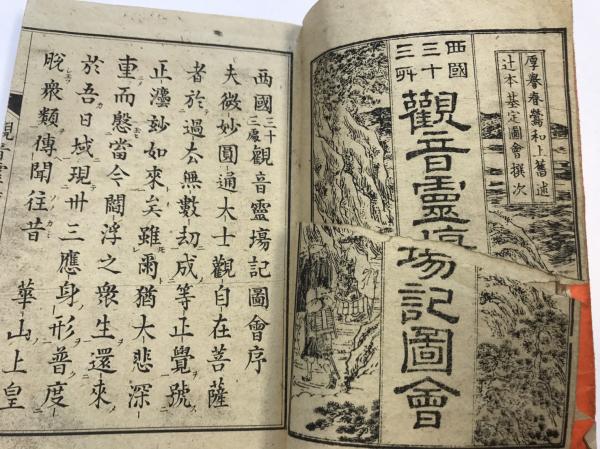 厚譽春鶯和上舊述
辻本基定圖會撰次
西國
三十
三所
觀音靈塲記圖會
西國三十三處觀音靈塲記圖會序
夫微妙圓通大士觀自在菩薩
者於過去無數劫成等正覺號
正灋玅如來矣雖爾猶大悲深
重而愍當今閻浮之衆生還來
於吾日域現丗三應身形普度
脫衆類傳聞往昔 華山上皇
觀音靈